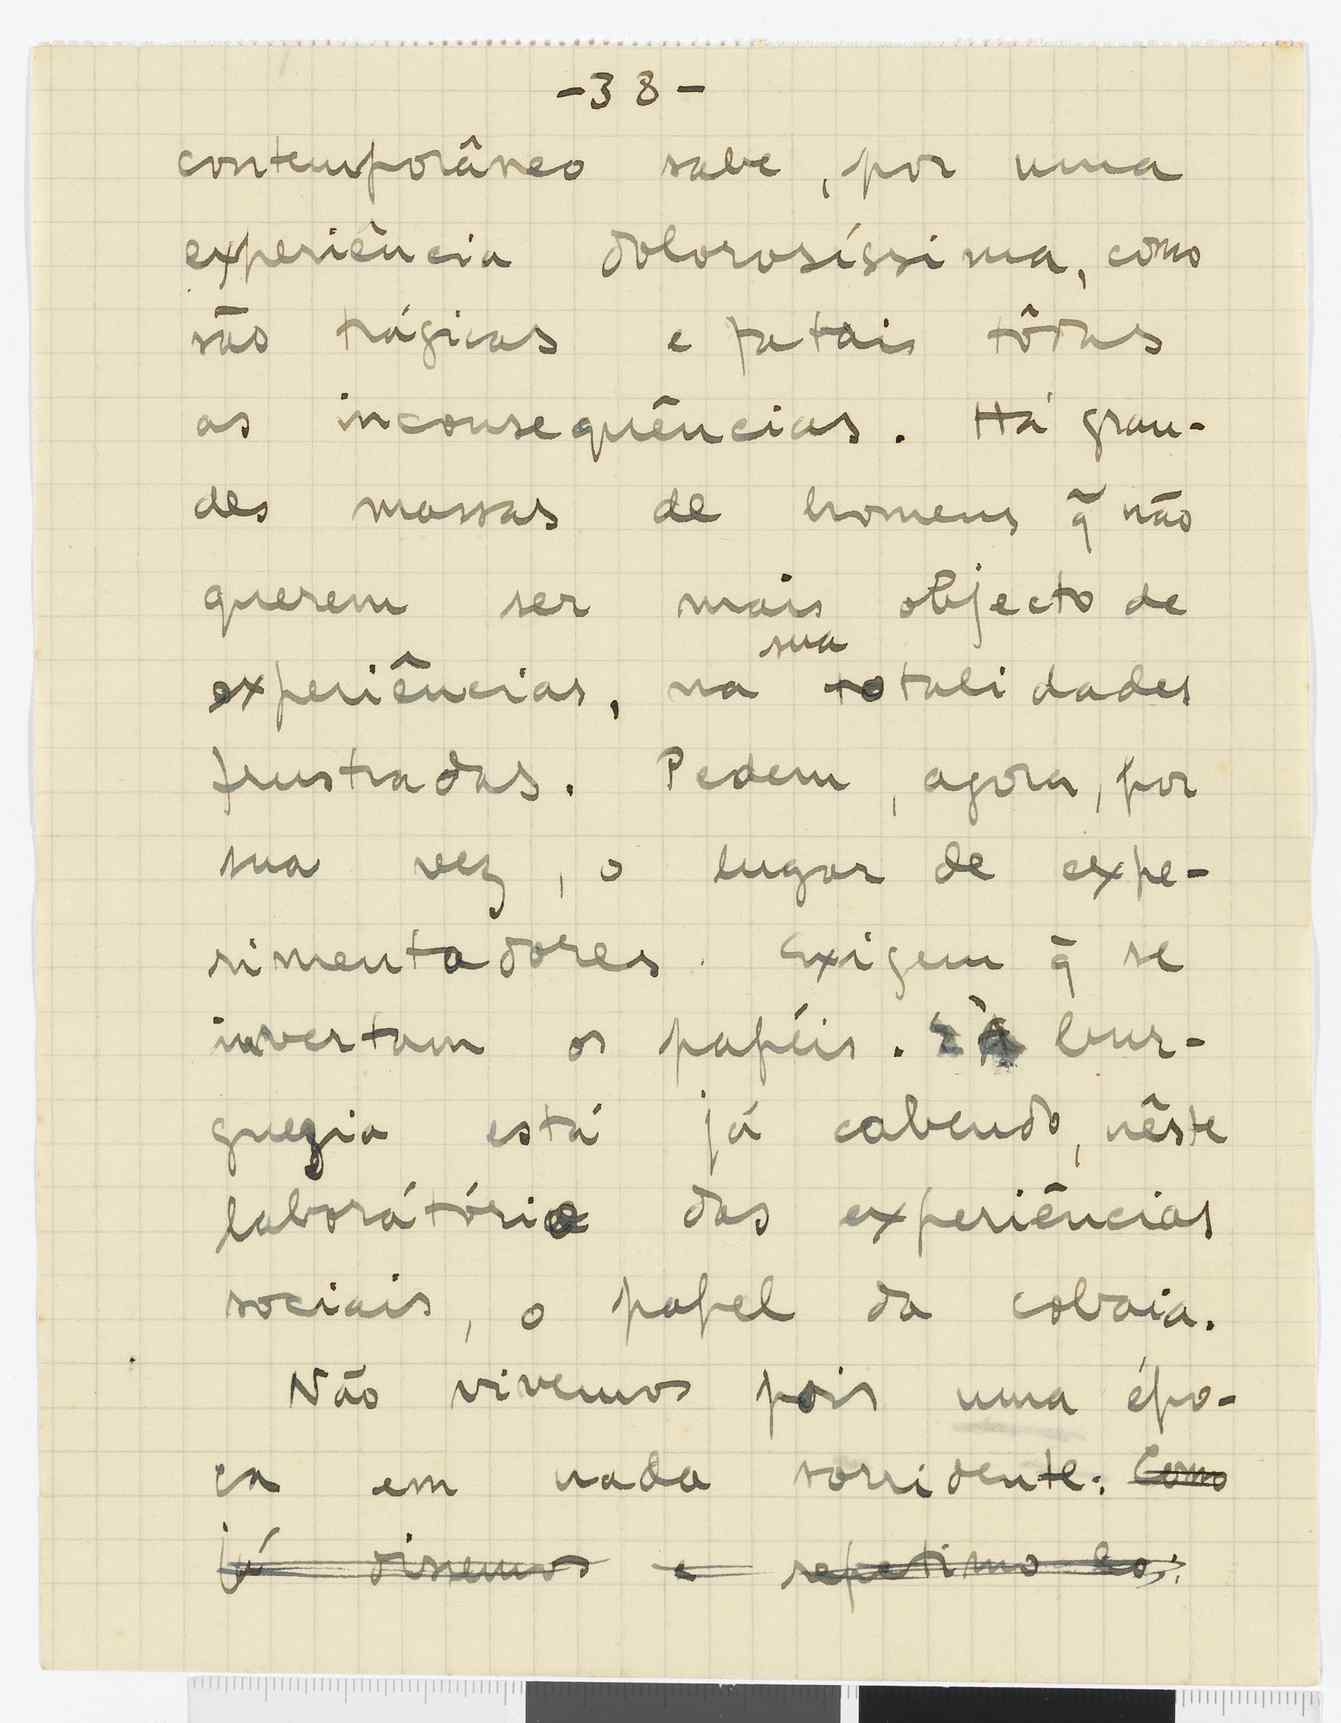 -38-
contemporâneo sabe, por uma
experiência dolorosíssima, como
são trágicas e fatais tôdas
as inconsequências. Há gran-
des massas de homens q̃ não
querem ser mais objecto de
sua
experiências, na totalidades
frustradas. Pedem, agora, por
sua vez, o lugar de expe-
rimentadores. Exigem q̃ se
invertam os papéis. À bur-
guezia está já cabendo, nêste
laborátório das experiências
sociais, o papel da cobaia.
Não vivemos pois uma épo-
ca em nada sorridente: Como
já dissemos e repetimo-lo: